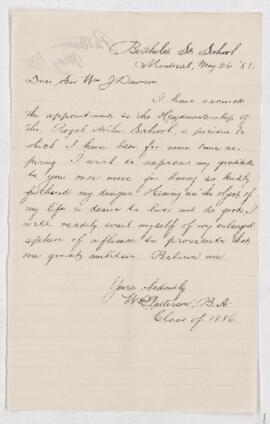 Berthelet St School
Montreal, May 26 '88.
Dear Sir Wm J Dawson
I have secured
the appointment to the Headmastership of
the Royal Arthur School, a position to
which I have been for some time as-
piring. I wish to express my gratitude
to you once more for having so kindly
furthered my designs. Having as the object of
my life a desire to live and do good, I
will readily avail myself of my enlarged
sphere of influence to prosecute that
one great ambition. Believe me.
Yours obediently
W. Patterson, B.A.
Class of 1886